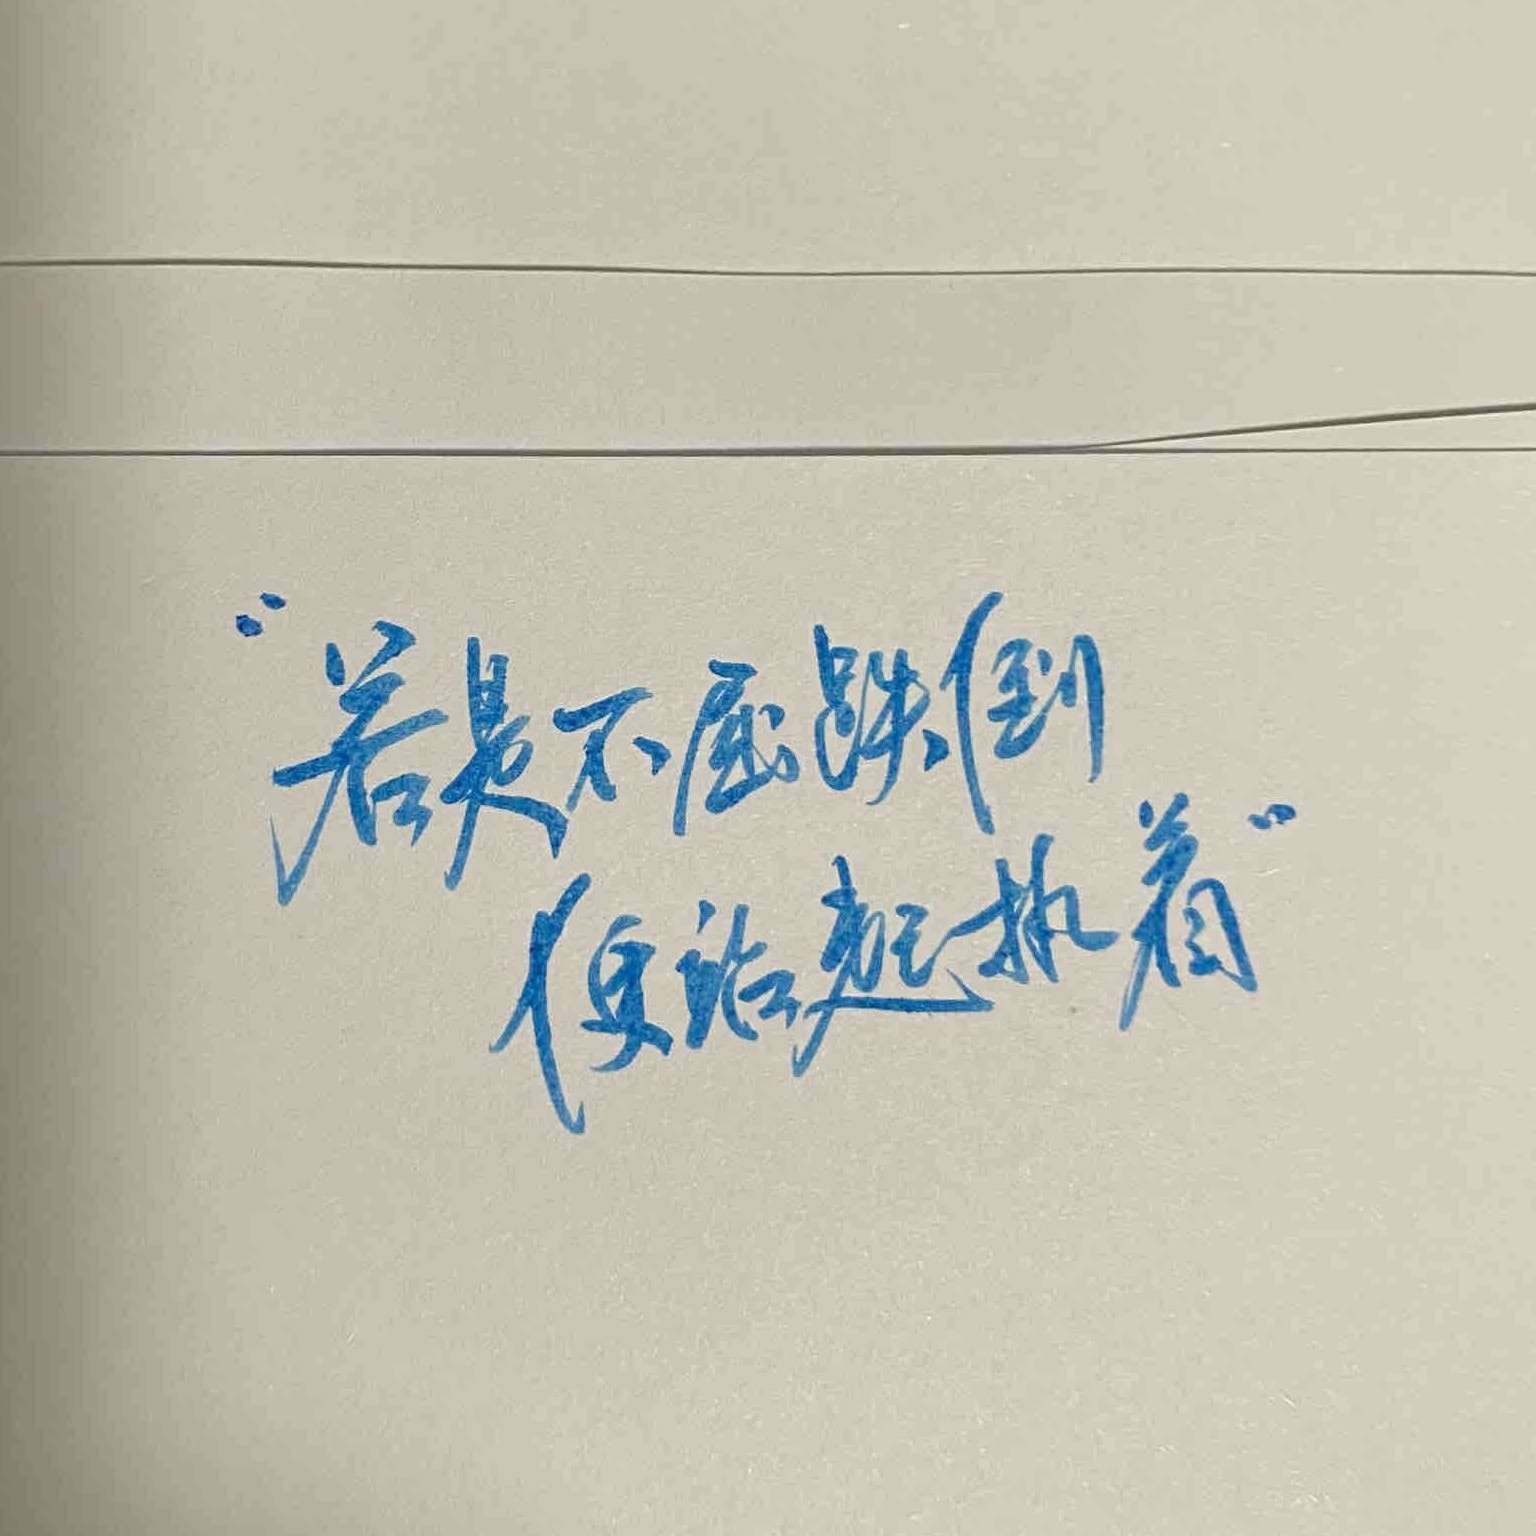 “若是不屈跌倒
便话起执着”